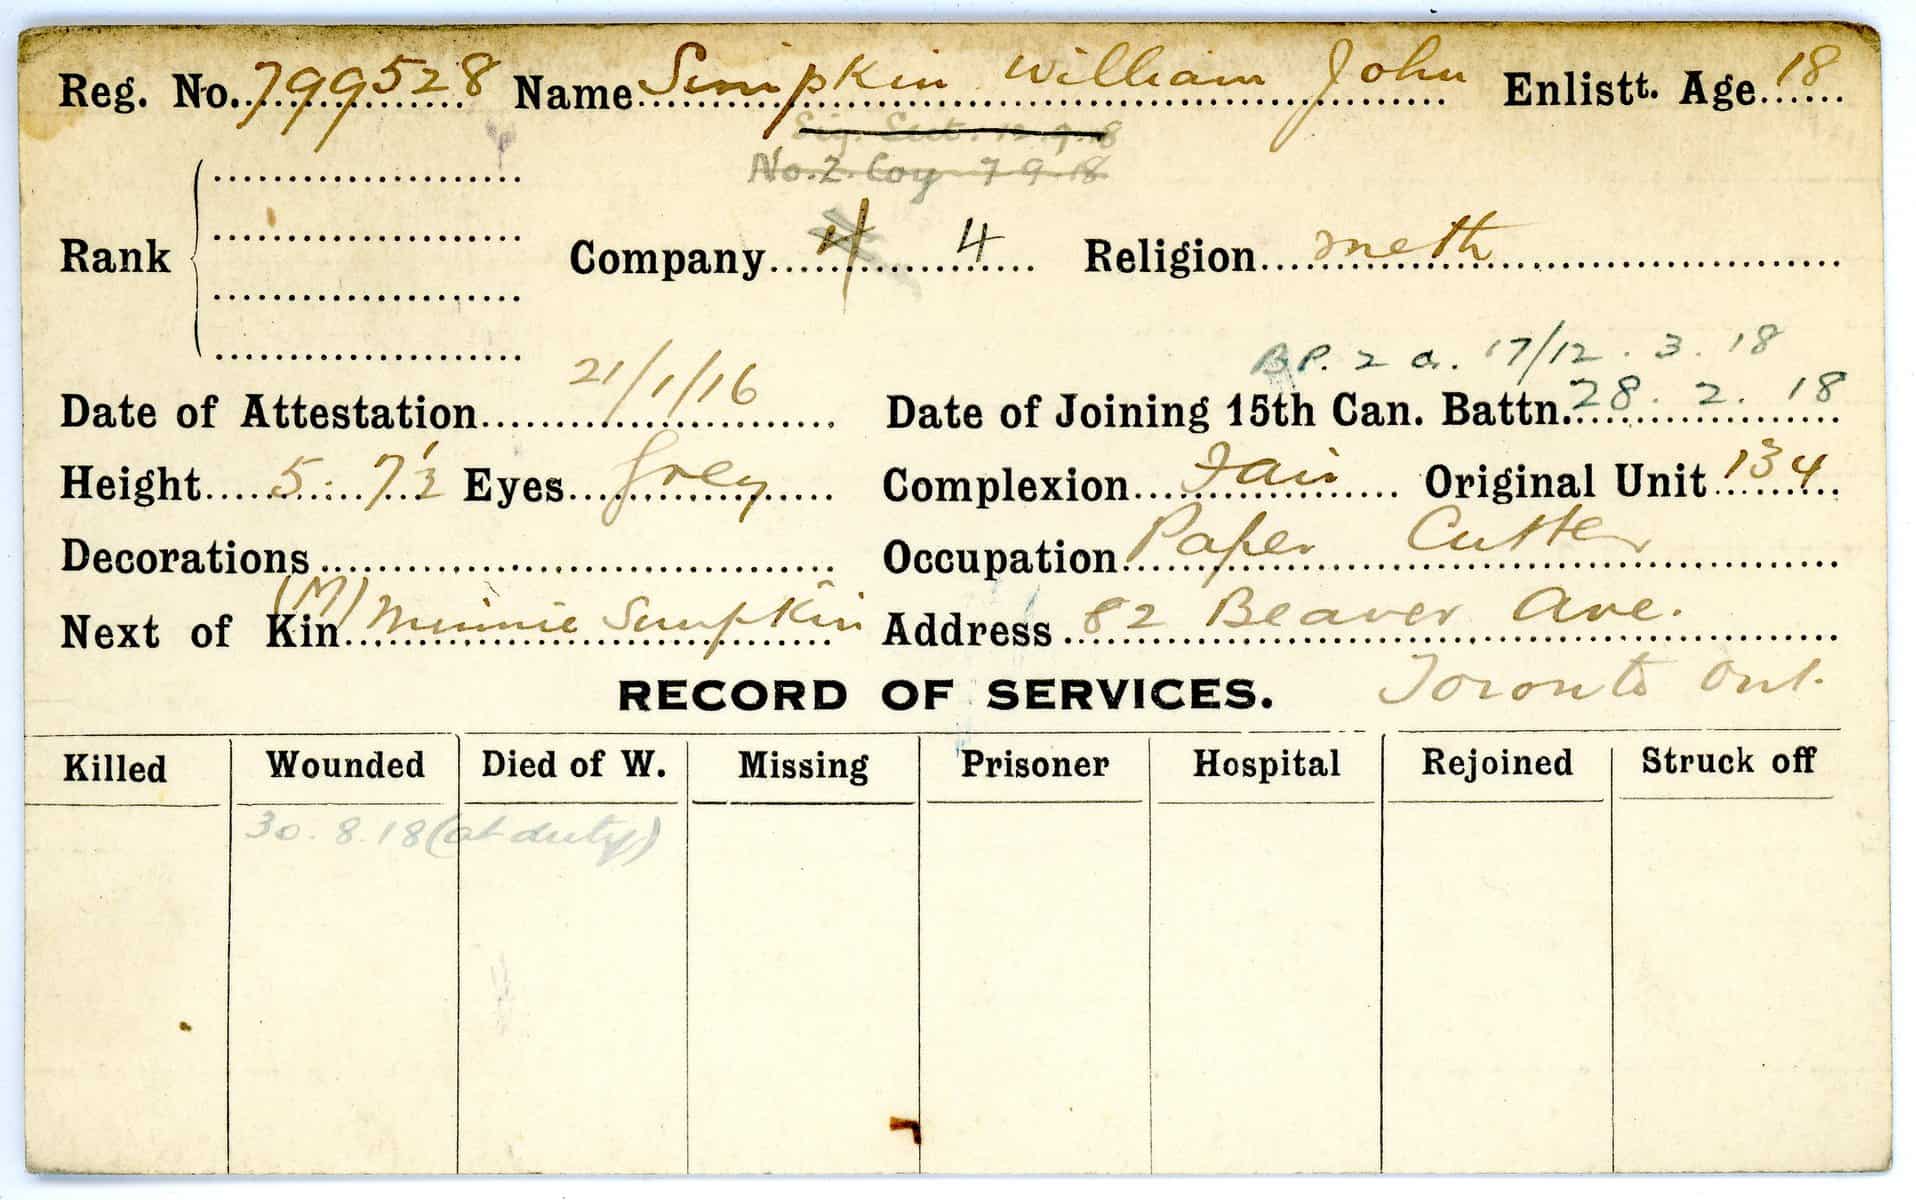 Reg. No. 799528 Name Simpkin William John Enlistt. Age 18
Sig. Sect. 12.9.18
No. 2. Coy 7 9.18
Rank Company 4 4 Religion meth
B.P. 2 a. 17/12. 3. 18
21/1/16
Date of Attestation Date of Joining 15th Can. Battn. 28. 2. 18
Height 5. 7½ Eyes Grey Complexion Fair Original Unit 134
Decorations Occupation Paper Cutter
Next of Kin (M) Minnie Simpkin Address 82 Beaver Ave.
RECORD OF SERVICES. Toronto Ont.
Killed Wounded Died of W. Missing Prisoner Hospital Rejoined Struck off
30. 8. 18 (at duty)